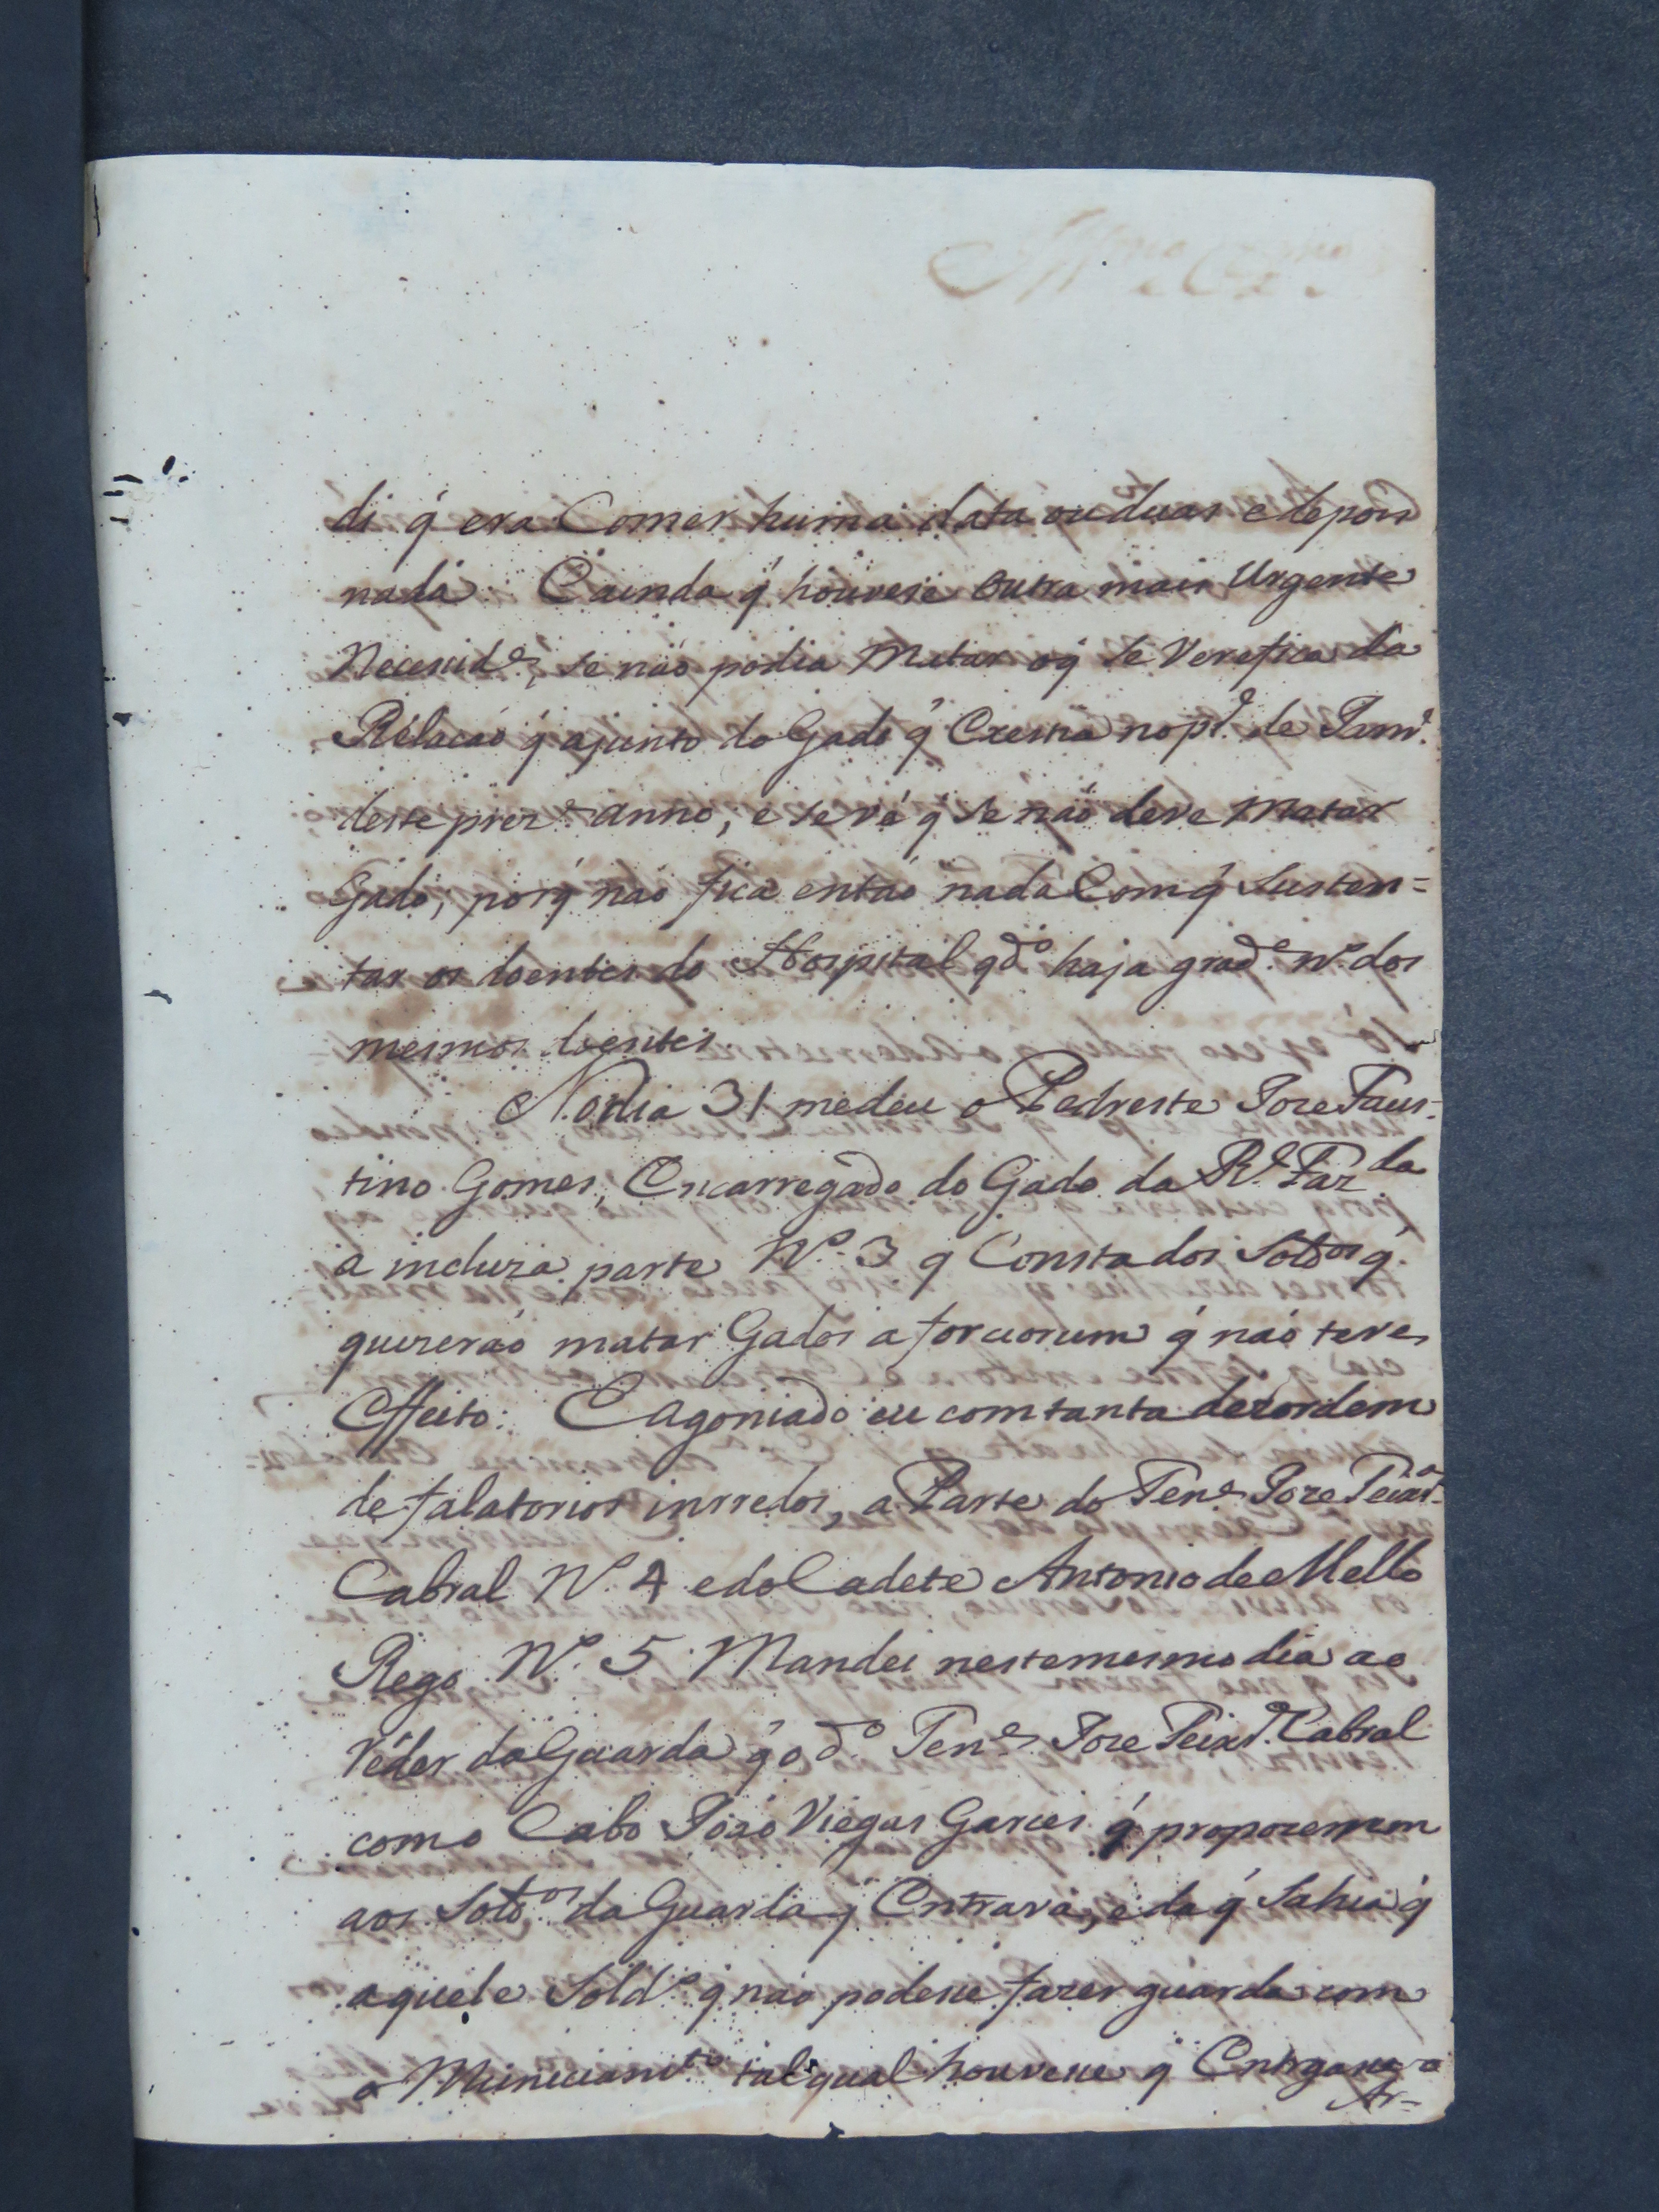 di q̃ era Comer huma data ou duas e depois
nada. E ainda q̃ houvese outra mais Urgente
Necesside, se não podia Matar oq̃ se Verefica da
Relacaó q̃ ajunto do Gado q̃ Crestia no pro. de Janro.
deste prezte. anno, e se vé q̃ se não deve Matar
Gado, porq̃ não fica entaó nada Com q̃ Susten=
tar os doentes do Hospital qdo. haja grade. no. dos
mesmos doentes.
No dia 31 me deu o Pedreste Joze Faus-
tino Gomes, Encarregado do Gado da Rl. Fazda
a incluza parte No. 3 q̃ Consta dos Soldos q̃
quizeraó matar Gados a forcionum q̃ naó teve
Effeito. E agoniado eu com tanta dezordem
de falatorios inrredos, a Parte do Tene. Joze Teixra.
Cabral No. 4 e do Cadete Antonio de Mello
Rego No. 5 Mandei neste mesmo dia ao
Réder da Guarda q̃ o do. Tene. Joze Teixra. Cabral
com o Cabo Joaó Viegas Garces q̃ propozessem
aos Soldos. da Guarda q̃ Entrava, e da q̃ Sahia q̃
aquele Soldo. q̃ naó podese fazer guarda com
o Municiamto tal qual houvese q̃ Entregase o
Ar=